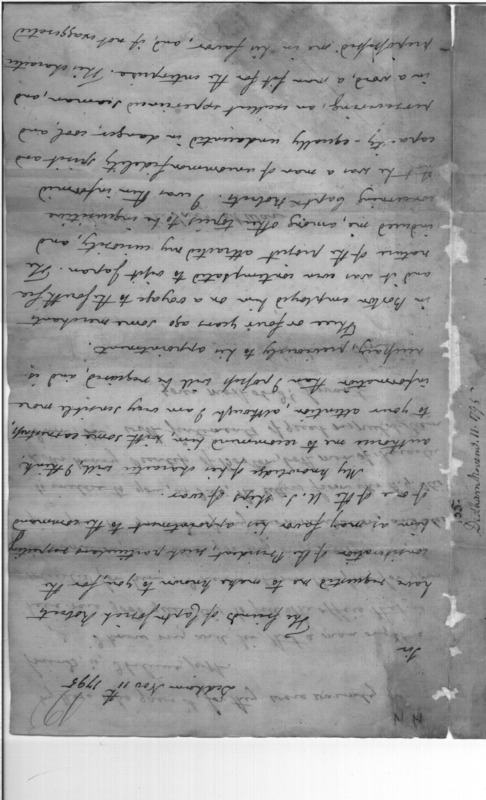 Dedham Nov 11th 1795
Sir
The friends of Capt. Joseph Roberts
have requested me to make known to you, for the
consideration of the President, such particulars respecting
him as may favor his appointment to the command
of one of the U. S. ships of war.
My knowledge of his character will, I think,
authorise me to recommend him with some earnestness,
to your attention, although I am very sensible more
information than I possess will be required, and is
necessary, previously to his appointment.
Three or four years ago some merchants
in Boston employed him on a voyage to the Pacific
and it was even contemplated to visit Japan. The
nature of the project attracted my curiosity, and
induced me, among other topics, to be inquisitive
concerning Capt. Roberts. I was then informed
that he was a man of uncommon fidelity, spirit and
capacity - equally undaunted in danger, cool, and
persevering, an excellent experienced seaman, and
in a word, a man fit for the enterprise. This character
prepossessed me in his favor, and, if not exaggerated
Dedham Nov 11 1795